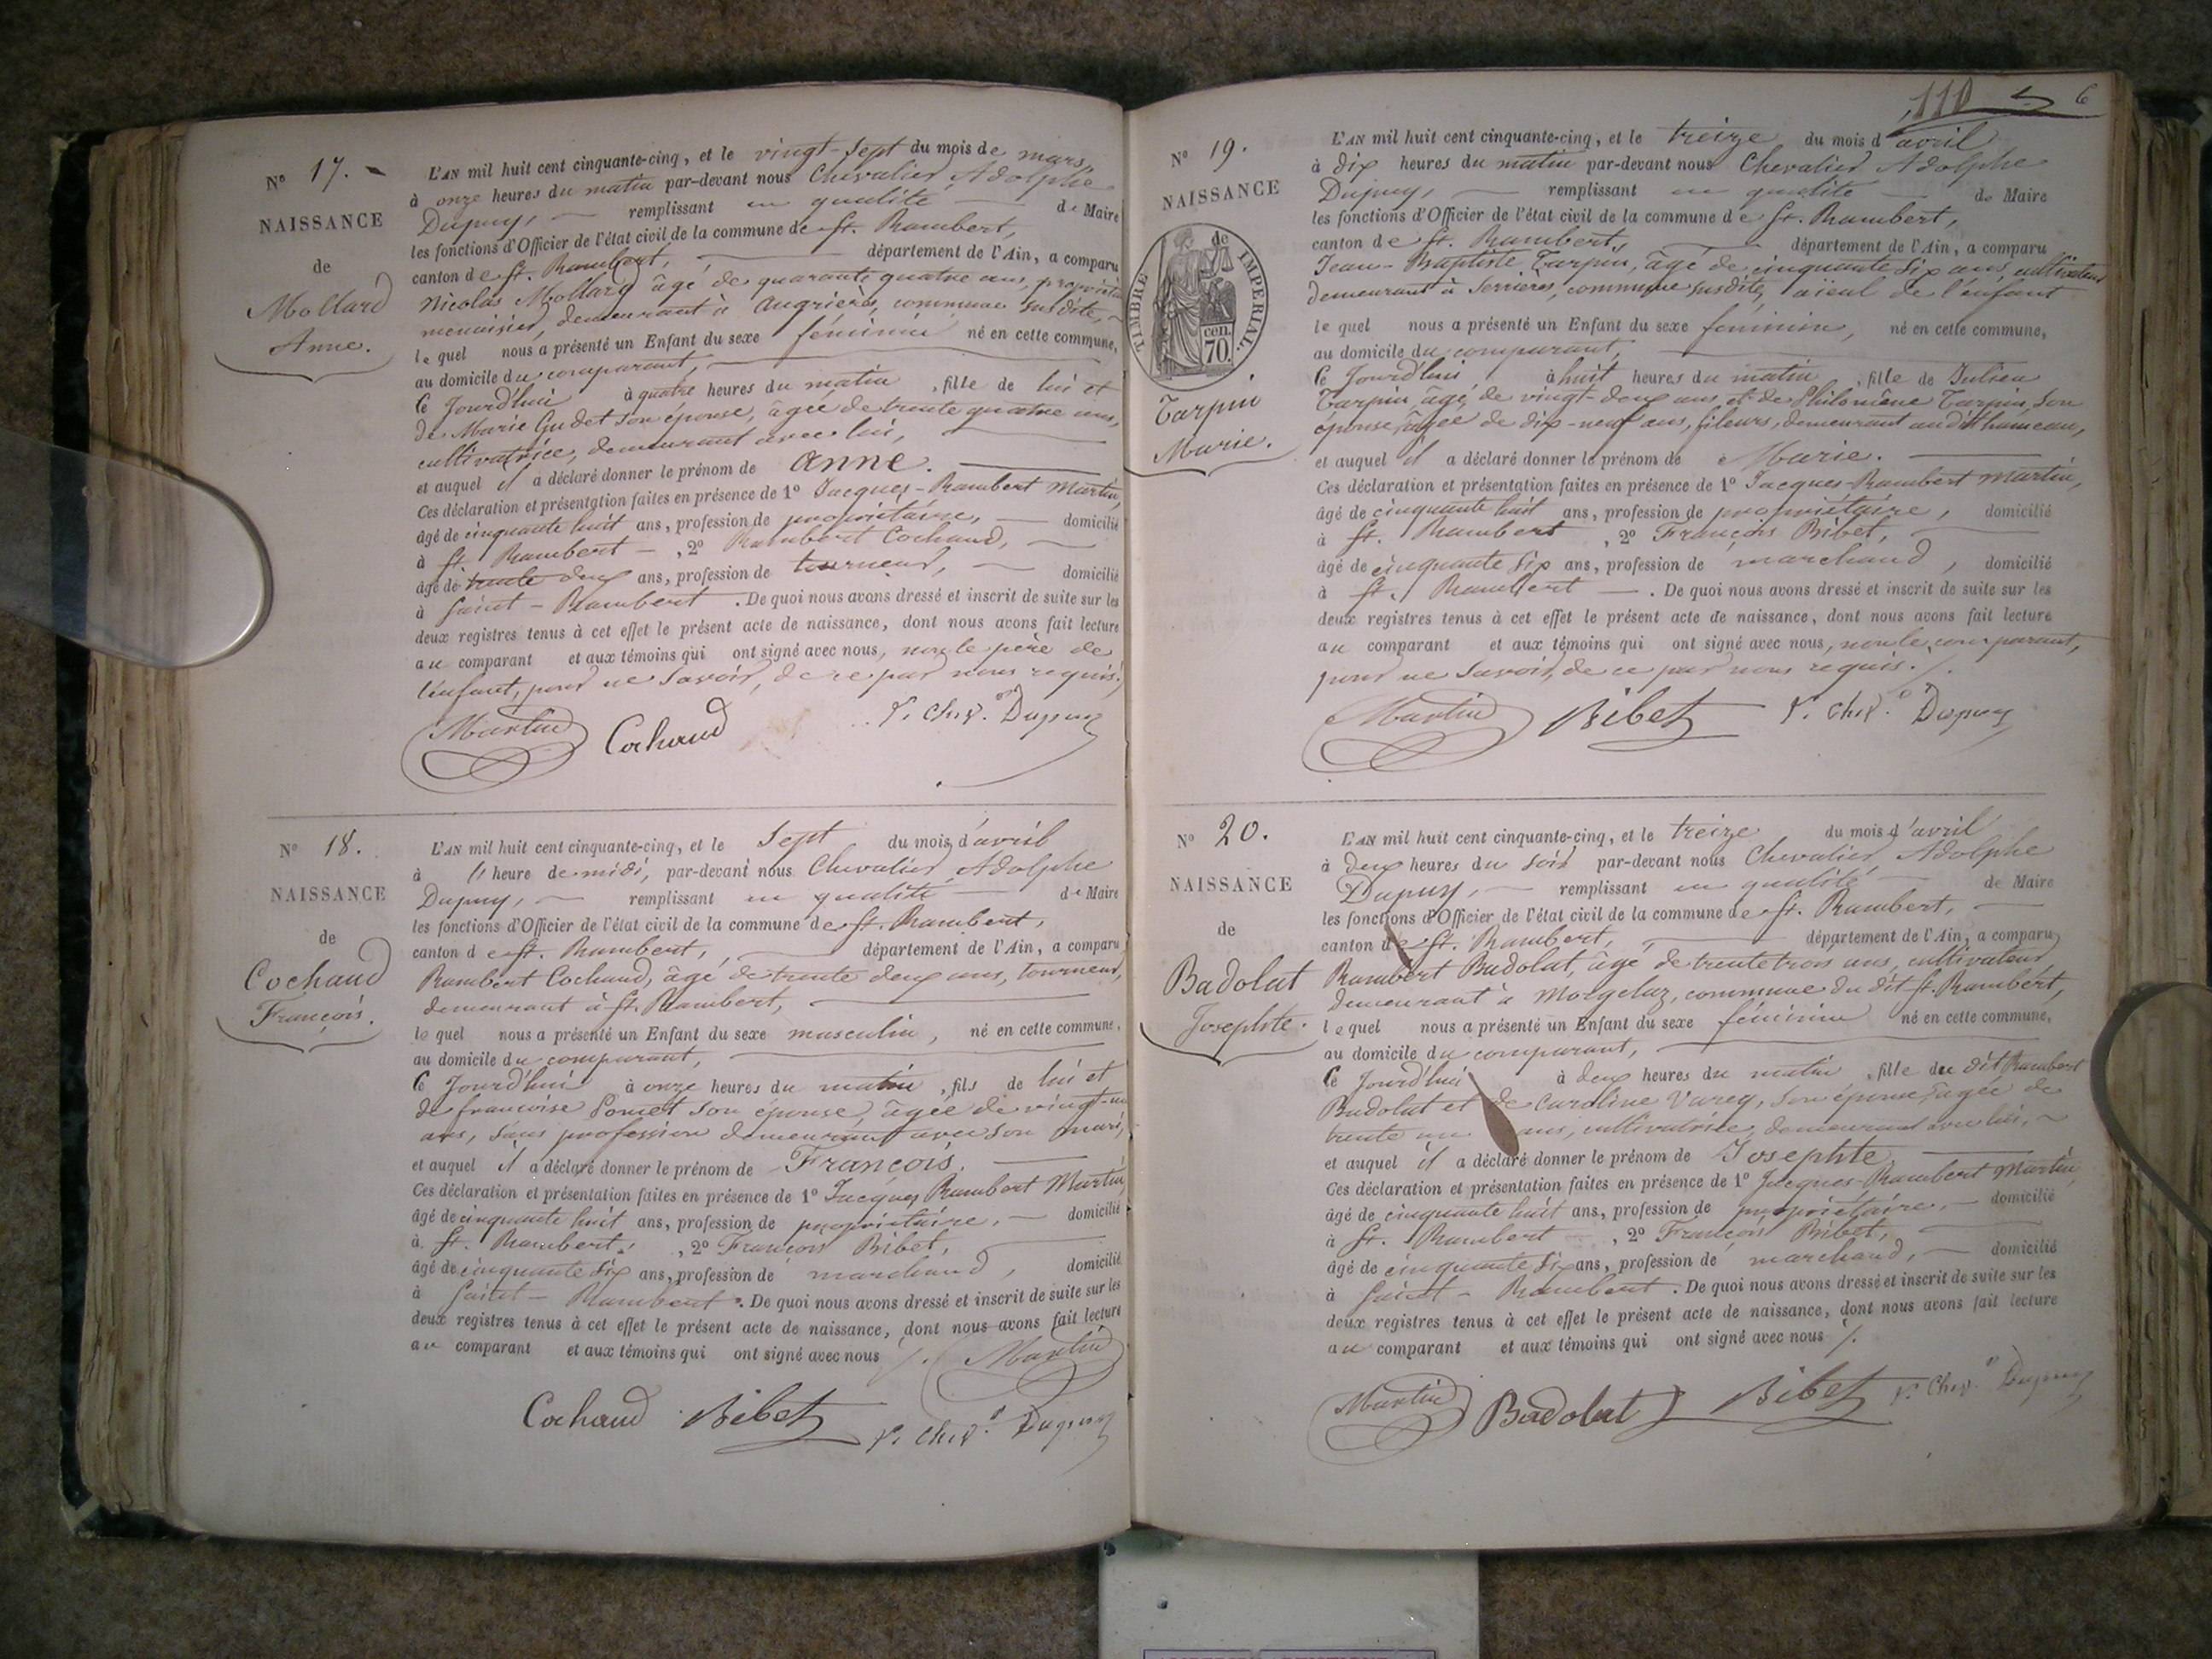 Nº 17.
NAISSANCE
de
Mollard
Anne.
L'AN mil huit cent cinquante-cinq, et le vingt-sept du mois de mars,
à onze heures du matin par-devant nous Chevalier Adolphe
Dupuy, remplissant en qualité de Maire
les fonctions d'Officier de l'état civil de la commune de St. Rambert,
canton de St. Rambert, département de l'Ain, a comparu
Nicolas Mollard âgé de quarante quatre ans, propriétaire
menuisier, demeurant à Angrières, commune susdite,
lequel nous a présenté un Enfant du sexe féminin né en cette commune,
au domicile du comparant,
Ce Jourd'hui à quatre heures du matin, fille de lui et
de Marie Gudet son épouse, âgée de trente quatre ans,
cultivatrice, demeurant avec lui,
et auquel il a déclaré donner le prénom de Anne.
Ces déclaration et présentation faites en présence de 1º Jacques-Rambert Martin,
âgé de cinquante huit ans, profession de propriétaire, domicilié
à St. Rambert, 2º Rambert Cochaud,
âgé de trente deux ans, profession de tourneur, domicilié
à Saint-Rambert. De quoi nous avons dressé et inscrit de suite sur les
deux registres tenus à cet effet le présent acte de naissance, dont nous avons fait lecture
au comparant et aux témoins qui ont signé avec nous, non le père de
l'enfant, pour ne savoir, de ce par nous requis.
Martin Cochaud Chev. Dupuy
Nº 18.
NAISSANCE
de
Cochaud
François.
L'AN mil huit cent cinquante-cinq, et le Sept du mois d'avril
à heure de midi, par-devant nous Chevalier Adolphe
Dupuy, remplissant en qualité de Maire
les fonctions d'Officier de l'état civil de la commune de St. Rambert,
canton de St. Rambert, département de l'Ain, a comparu
Rambert Cochaud, âgé de trente deux ans, tourneur,
demeurant à St. Rambert,
lequel nous a présenté un Enfant du sexe masculin, né en cette commune,
au domicile du comparant,
Ce Jourd'hui à onze heures du matin, fils de lui et
de francoise Pomet son épouse, âgée de vingt-un
ans, sans profession demeurant avec son mari,
et auquel il a déclaré donner le prénom de François.
Ces déclaration et présentation faites en présence de 1º Jacques Rambert Martin,
âgé de cinquante huit ans, profession de propriétaire, domicilié
à St. Rambert, 2º François Bibet,
âgé de cinquante six ans, profession de marchand, domicilié
à Saint-Rambert. De quoi nous avons dressé et inscrit de suite sur les
deux registres tenus à cet effet le présent acte de naissance, dont nous avons fait lecture
au comparant et aux témoins qui ont signé avec nous /. Martin
Cochaud Bibet Chev. Dupuy
110 6
Nº 19.
NAISSANCE
de
TIMBRE IMPERIAL.
cen.
70.
Tarpin
Marie.
L'AN mil huit cent cinquante-cinq, et le treize du mois d'avril
à dix heures du matin par-devant nous Chevalier Adolphe
Dupuy, remplissant en qualité de Maire
les fonctions d'Officier de l'état civil de la commune de St. Rambert,
canton de St. Rambert, département de l'Ain, a comparu
Jean-Baptiste Tarpin, âgé de cinquante six ans, cultivateur
demeurant à Serrières, commune susdite, aïeul de l'enfant
lequel nous a présenté un Enfant du sexe féminin, né en cette commune,
au domicile du comparant,
Ce Jourd'hui à huit heures du matin, fille de Julien
Tarpin, âgé de vingt-deux ans, et de Philomène Tarpin, son
épouse, âgée de dix-neuf ans, fileurs, demeurant au dit hameau,
et auquel il a déclaré donner le prénom de Marie.
Ces déclaration et présentation faites en présence de 1º Jacques-Rambert Martin,
âgé de cinquante huit ans, profession de propriétaire, domicilié
à St. Rambert, 2º François Bibet,
âgé de cinquante six ans, profession de marchand, domicilié
à St. Rambert. De quoi nous avons dressé et inscrit de suite sur les
deux registres tenus à cet effet le présent acte de naissance, dont nous avons fait lecture
au comparant et aux témoins qui ont signé avec nous, non le comparant,
pour ne savoir, de ce par nous requis. /.
Martin Bibet Chev. Dupuy
Nº 20.
NAISSANCE
de
Badolat
Josephte.
L'AN mil huit cent cinquante-cinq, et le treize du mois d'avril
à deux heures du soir par-devant nous Chevalier Adolphe
Dupuy, remplissant en qualité de Maire
les fonctions d'Officier de l'état civil de la commune de St. Rambert,
canton de St. Rambert, département de l'Ain, a comparu
Rambert Badolat, âgé de trente trois ans, cultivateur
demeurant à Morgelaz, commune du dit St. Rambert,
lequel nous a présenté un Enfant du sexe féminin né en cette commune,
au domicile du comparant,
Ce Jourd'hui à deux heures du matin, fille du dit Rambert
Badolat et de Caroline Varey, son épouse, âgée de
trente un ans, cultivatrice, demeurant avec lui,
et auquel il a déclaré donner le prénom de Josephte.
Ces déclaration et présentation faites en présence de 1º Jacques-Rambert Martin,
âgé de cinquante huit ans, profession de propriétaire, domicilié
à St. Rambert, 2º François Bibet,
âgé de cinquante six ans, profession de marchand, domicilié
à Saint-Rambert. De quoi nous avons dressé et inscrit de suite sur les
deux registres tenus à cet effet le présent acte de naissance, dont nous avons fait lecture
au comparant et aux témoins qui ont signé avec nous /.
Martin Badolat Bibet Chev. Dupuy